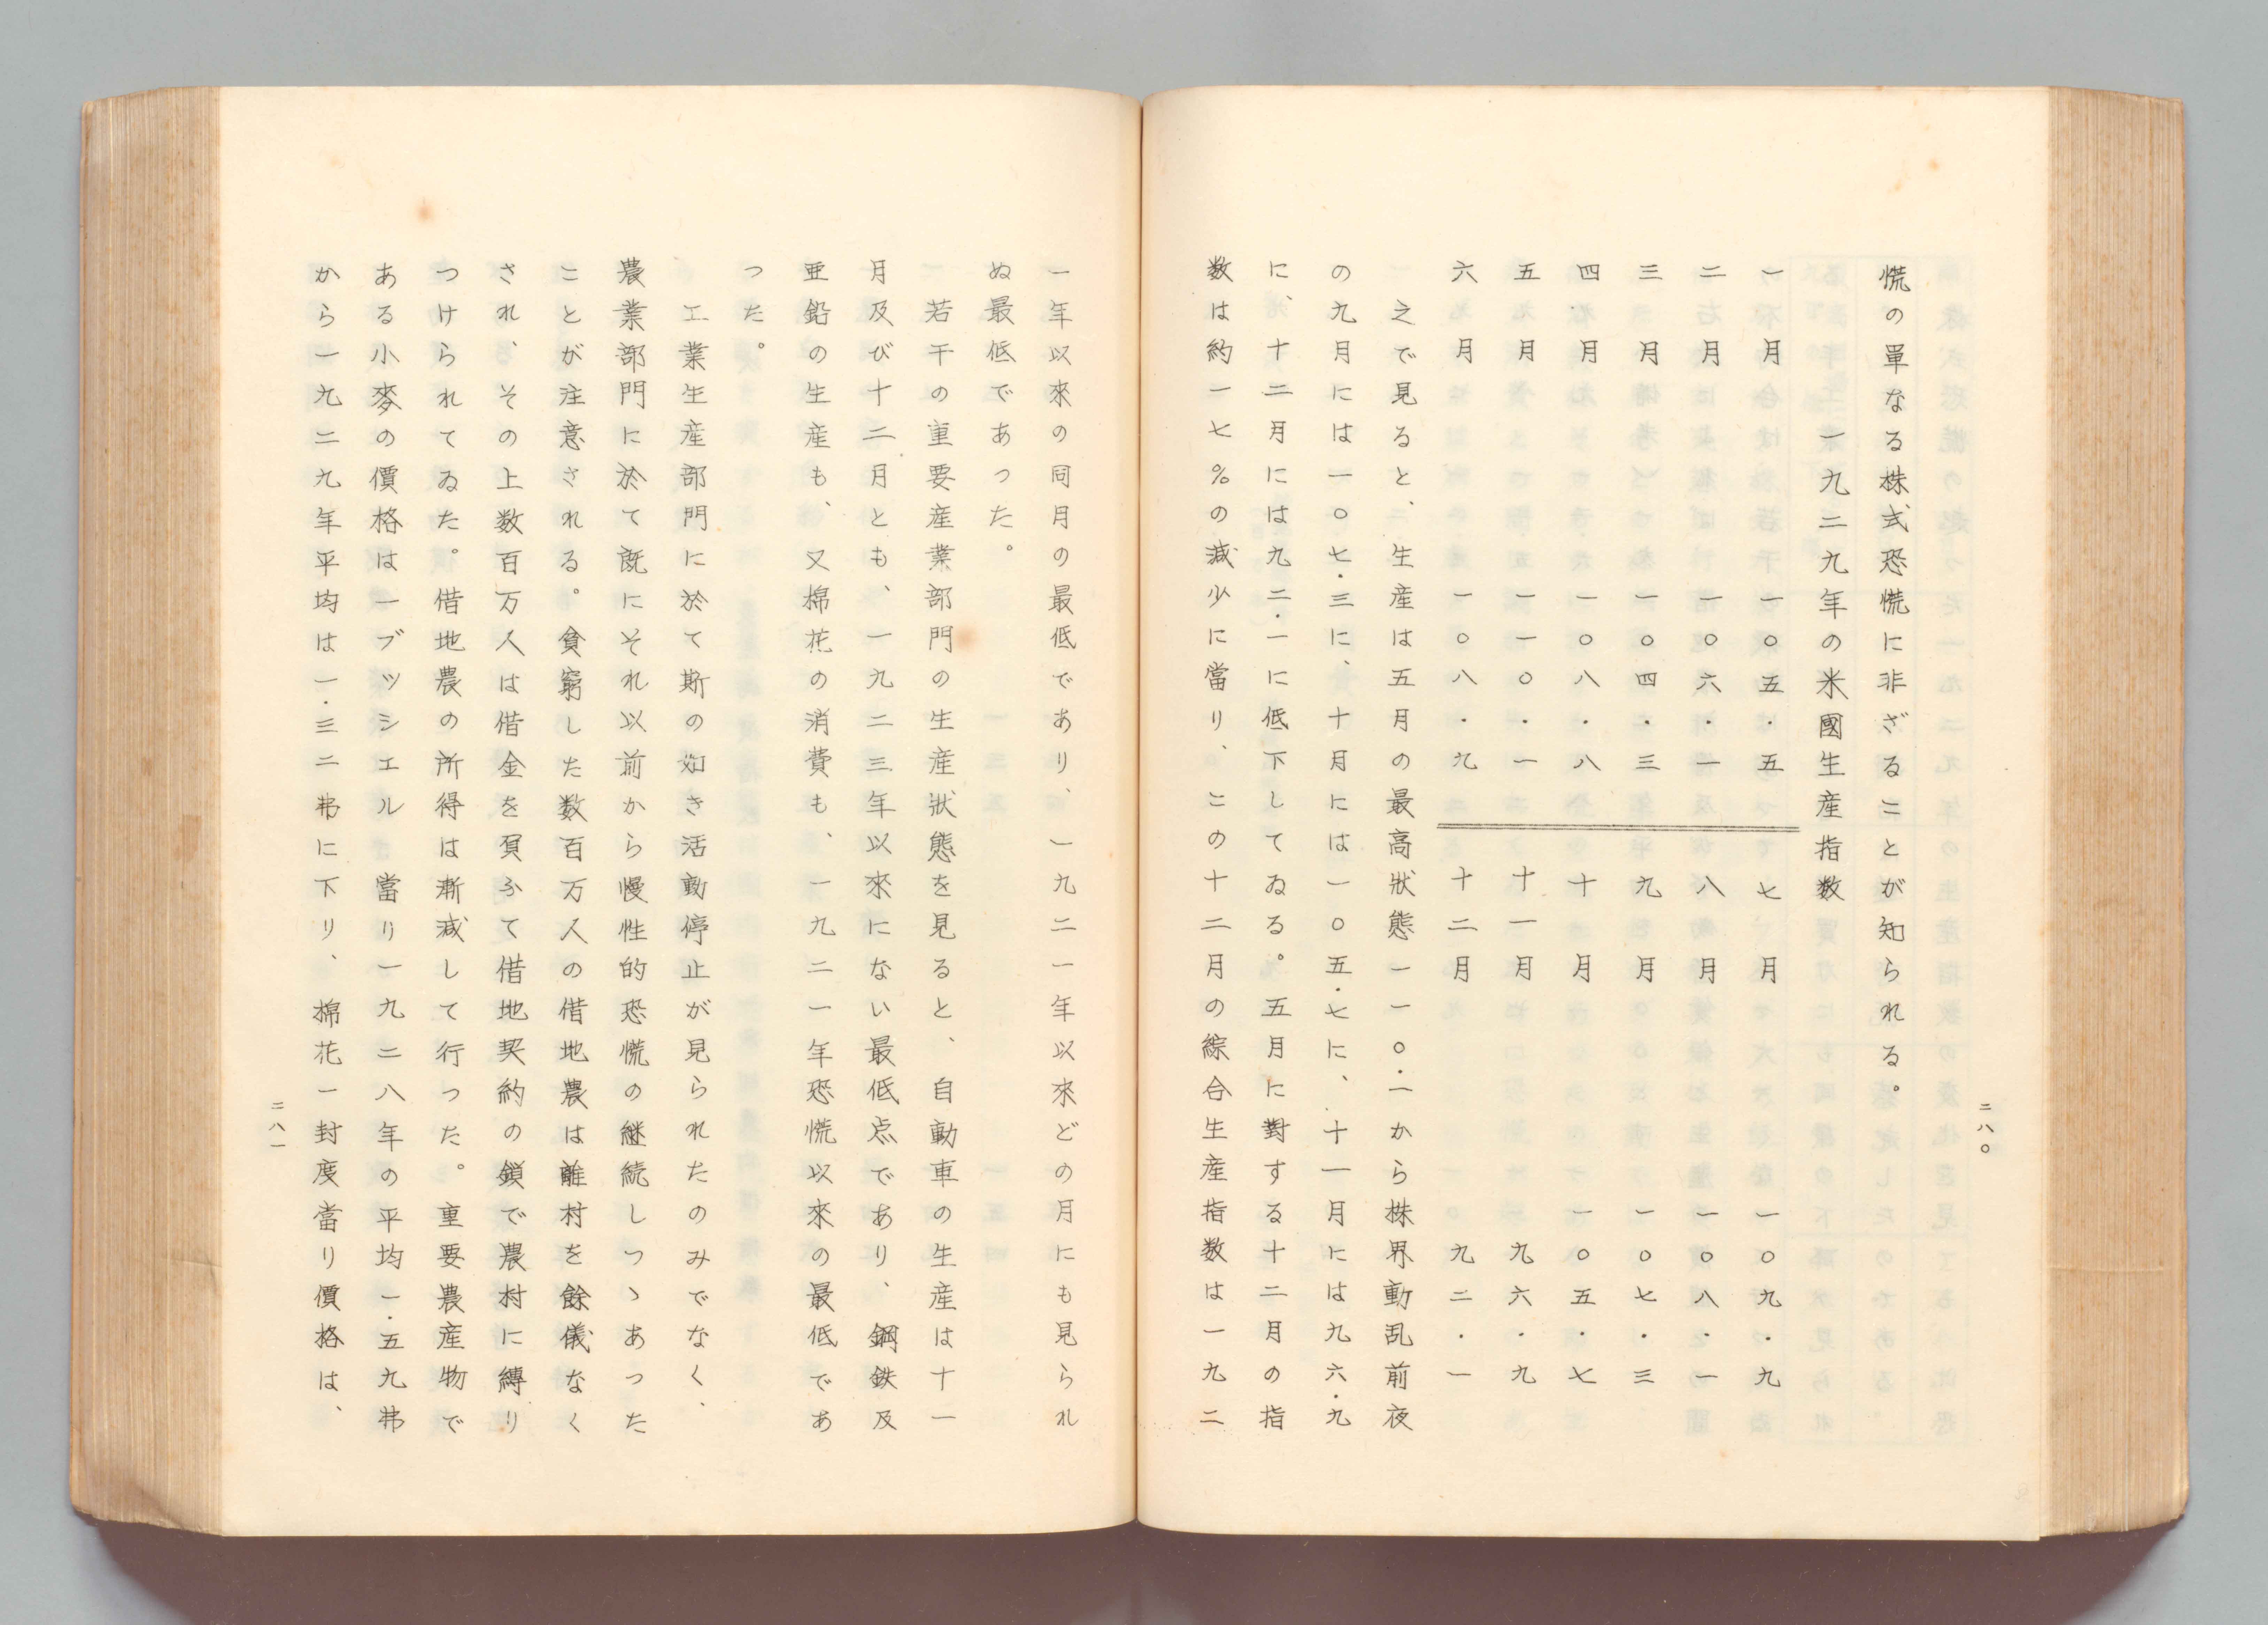 慌の單なる株式恐慌に非ざることが知られる。
一九二九年の米國生産指数
一月 一〇五・五 七月 一〇九・九
二月 一〇六・一 八月 一〇八・一
三月 一〇四・三 九月 一〇七・三
四月 一〇八・八 十月 一〇五・七
五月 一一〇・一 十一月 九六・九
六月 一〇八・九 十二月 九二・一
之で見ると、生産は五月の最高狀態一一〇・一から株界動乱前夜
の九月には一〇七・三に、十月には一〇五・七に、十一月には九六・九
に、十二月には九二・一に低下してゐる。五月に對する十二月の指
数は約一七%の減少に當り、この十二月の綜合生産指数は一九二
二八〇
一年以來の同月の最低であり、一九二一年以來どの月にも見られ
ぬ最低であった。
若干の重要産業部門の生産狀態を見ると、自動車の生産は十一
月及び十二月とも、一九二三年以來にない最低点であり、鋼鉄及
亜鉛の生産も、又棉花の消費も、一九二一年恐慌以來の最低であ
った。
工業生産部門に於て斯の如き活動停止が見られたのみでなく、
農業部門に於て既にそれ以前から慢性的恐慌の継続しつゝあった
ことが注意される。貧窮した数百万人の借地農は離村を餘儀なく
され、その上数百万人は借金を負ふて借地契約の鎖で農村に縛り
つけられてゐた。借地農の所得は漸減して行った。重要農産物で
ある小麥の價格は一ブッシエル當り一九二八年の平均一・五九弗
から一九二九年平均は一・三二弗に下り、棉花一封度當り價格は、
二八一